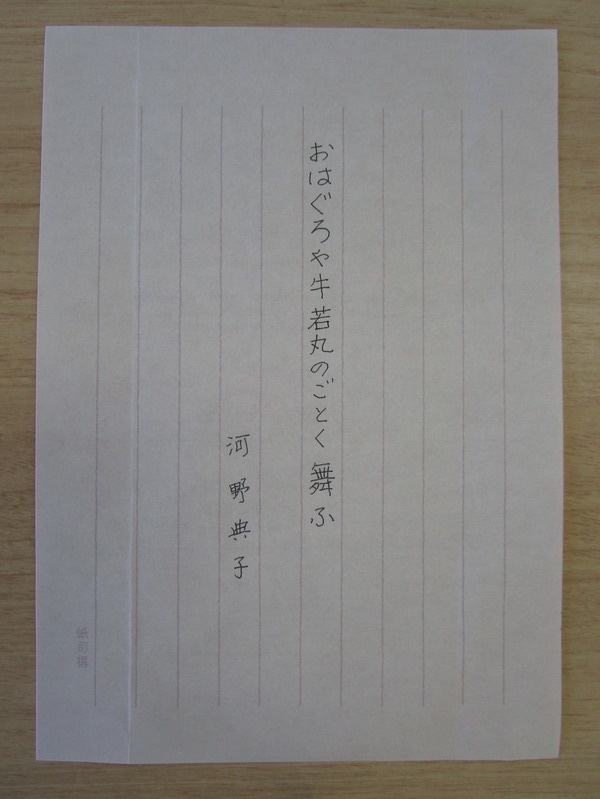 おはぐろや牛若丸のごとく舞ふ
河野典子
紙司撰